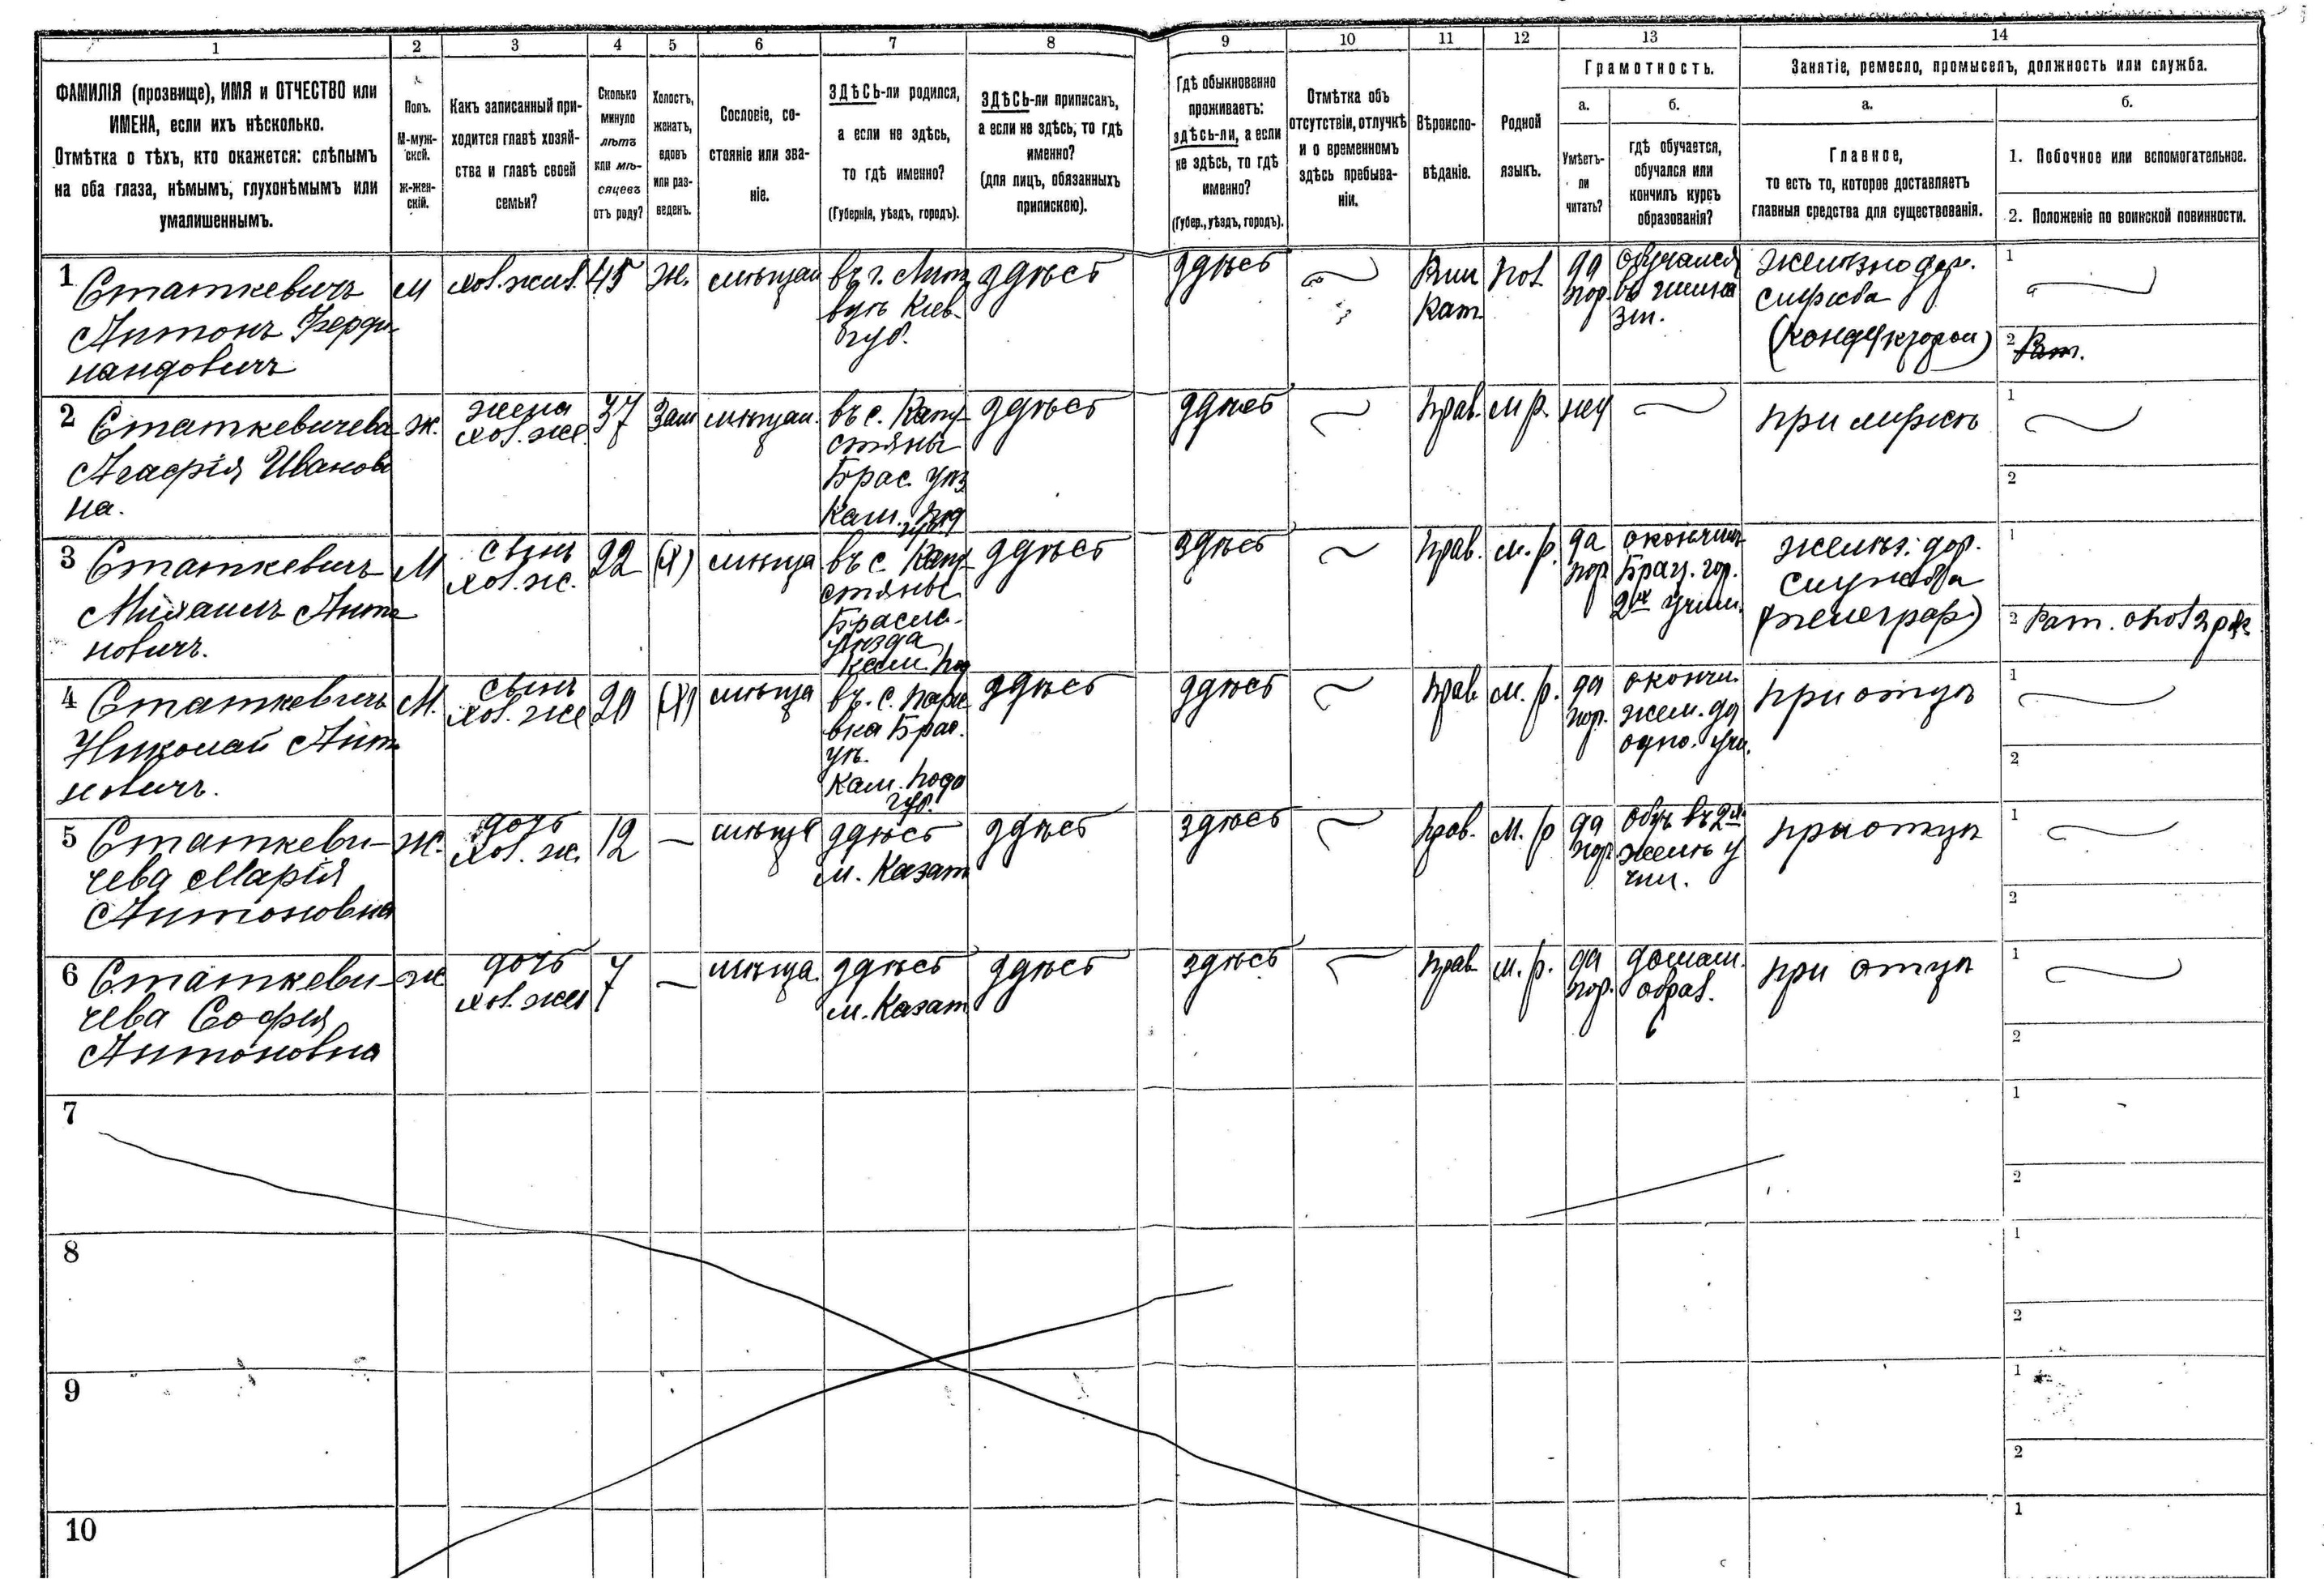 1 2 3 4 5 6 7 8 9 10 11 12 13 14
ФАМИЛІЯ (прозвище), ИМЯ и ОТЧЕСТВО или
ИМЕНА, если ихъ нѣсколько.
Отмѣтка о тѣхъ, кто окажется: слѣпымъ
на оба глаза, нѣмымъ, глухонѣмымъ или
умалишеннымъ.
Полъ.
М-муж-
ской.
Ж-жен-
скій.
Какъ записанный при-
ходится главѣ хозяй-
ства и главѣ своей
семьи?
Сколько
минуло
лѣтъ
или мѣ-
сяцевъ
отъ роду?
Холостъ,
женатъ,
вдовъ
или раз-
веденъ.
Сословіе, со-
стояніе или зва-
ніе.
ЗДѢСЬ-ли родился,
а если не здѣсь,
то гдѣ именно?
(Губернія, уѣздъ, городъ).
ЗДѢСЬ-ли приписанъ,
а если не здѣсь, то гдѣ
именно?
(для лицъ, обязанныхъ
припискою).
Гдѣ обыкновенно
проживаетъ:
здѣсь-ли, а если
не здѣсь, то гдѣ
именно?
(Губер., уѣздъ, городъ).
Отмѣтка объ
отсутствіи, отлучкѣ
и о временномъ
здѣсь пребыва-
ніи.
Вѣроиспо-
вѣданіе.
Родной
языкъ.
Грамотность.
а.
Умѣетъ-
ли
читать?
б.
гдѣ обучается,
обучался или
кончилъ курсъ
образованія?
Занятіе, ремесло, промыселъ, должность или служба.
а.
Главное,
то есть то, которое доставляетъ
главныя средства для существованія.
б.
1. Побочное или вспомогательное.
2. Положеніе по воинской повинности.
1 Статкевичъ
Антонъ Ферди-
нандовичъ
м
45
ж.
мѣщан
Киев.
губ.
здѣсь
здѣсь
Рим
Кат.
Пол.
да
обучался
въ гимна
зіи.
железнодор.
служба
(кондуктором)
1
2 Рат.
2 Статкевичева
Агафія Иванов
на.
ж.
жена
37
Зам
мѣщан.
въ с. Капу-
стяны
Брас. уѣз
Кам. Под
губ.
здѣсь
здѣсь
Прав.
м р.
при мужѣ
1
2
3 Статкевичъ
Михаилъ Анто
новичъ.
М
сынъ
22
(Х)
мѣща
въ с. Капу-
стяны
Брасла-
уѣзда
Кам. Под
здѣсь
здѣсь
Прав.
м. р.
да
окончилъ
Брац. гор.
2хк учил.
желѣз. дор.
служба
(телеграф.)
1
2 Рат. опол 2 раз.
4 Статкевичъ
Николай Анто
новичъ.
М.
сынъ
20
(Х)
мѣща
Брас.
уѣ.
Кам. Подо
губ.
здѣсь
здѣсь
Прав.
м. р.
да
окончи.
жел. до
одно. учи.
при отцѣ
1
2
5 Статкеви-
чева Марія
Антоновна
ж.
дочь
12
мѣща
здѣсь
м. Казат
здѣсь
здѣсь
Прав.
м. р
да
при отцѣ
1
2
6 Статкеви-
чева Софія
Антоновна
ж
дочь
7
мѣща.
здѣсь
м. Казат
здѣсь
здѣсь
Прав.
м. р.
да
домаш.
образ.
при отцѣ
1
2
7
1
2
8
1
2
9
1
2
10
1